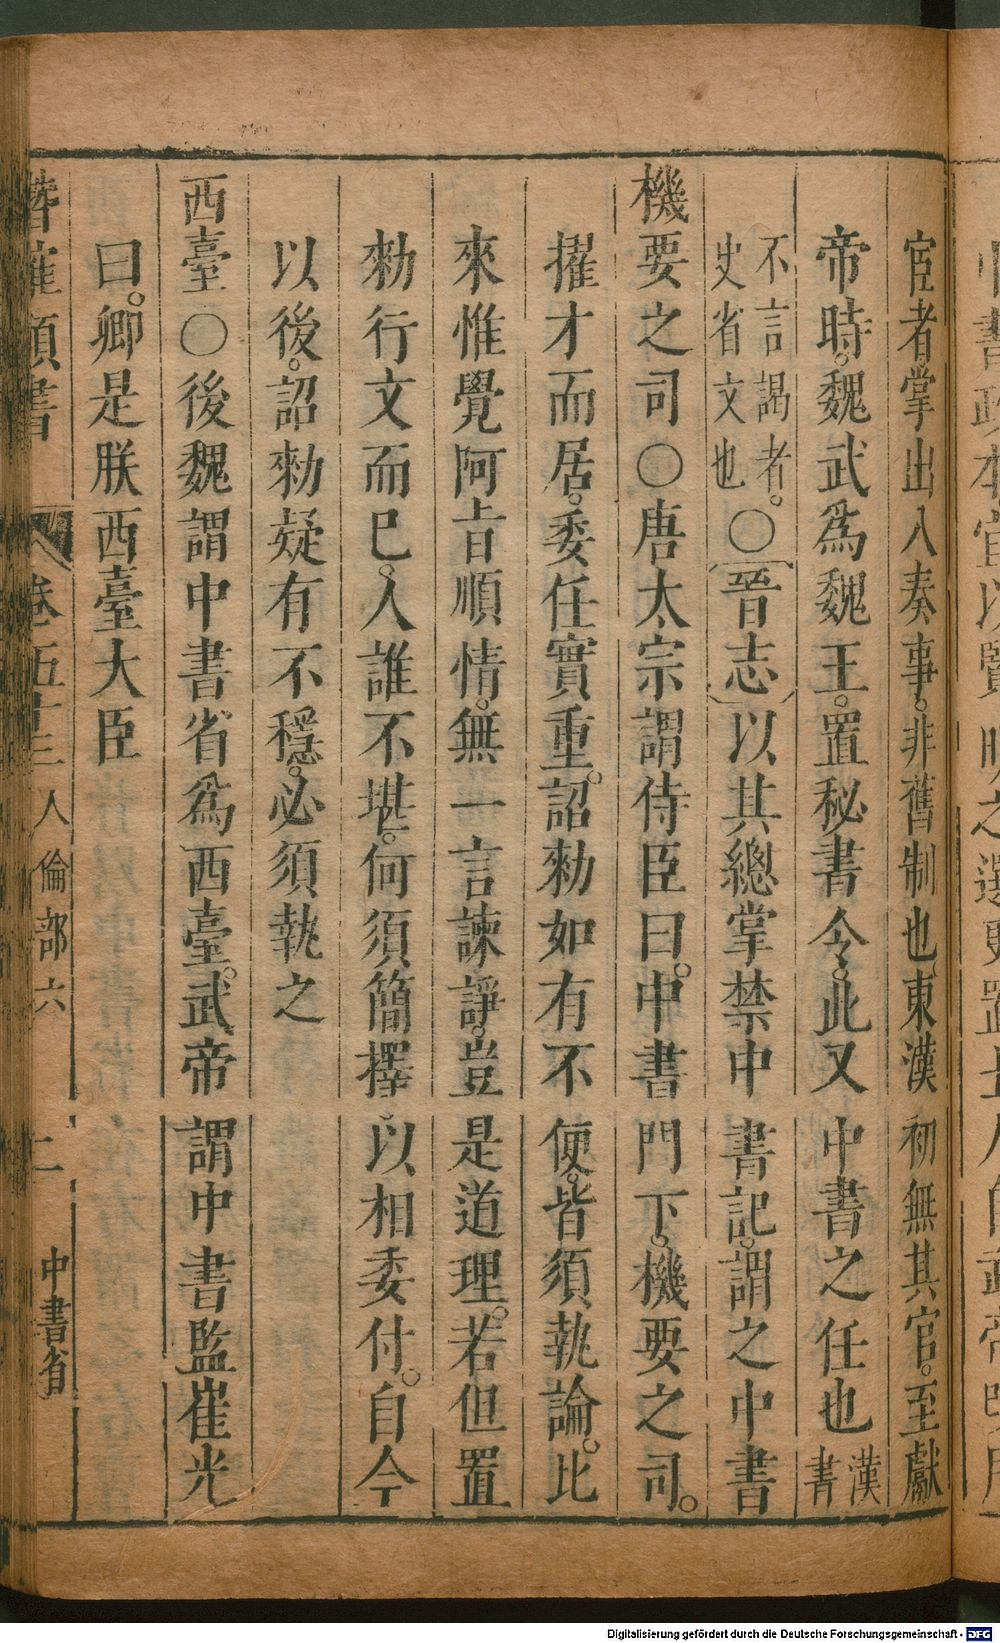 宦者掌出入奏事。非舊制也東漢初無其官。至獻
帝時。魏武爲魏王。置秘書令。此又中書之任也漢書
不言謁者。史省文也〇晉志以其總掌禁中書記。謂之中書
機要之司〇唐太宗謂侍臣曰。中書門下。機要之司。
擢才而居。委任實重。詔勑如有不便。皆須執論。比
來惟覺阿旨順情。無一言諫諍。豈是道理。若但置
勑行文而已。人誰不堪。何須簡擇以相委付。自今
以後。詔勑疑有不穩。必須執之
西臺〇後魏謂中書省爲西臺。武帝謂中書監崔光
曰。卿是朕西臺大臣
潛確類書 卷五十三 人倫部六 二 中書省
Digitalisierung gefördert durch die Deutsche Forschungsgemeinschaft - DFG